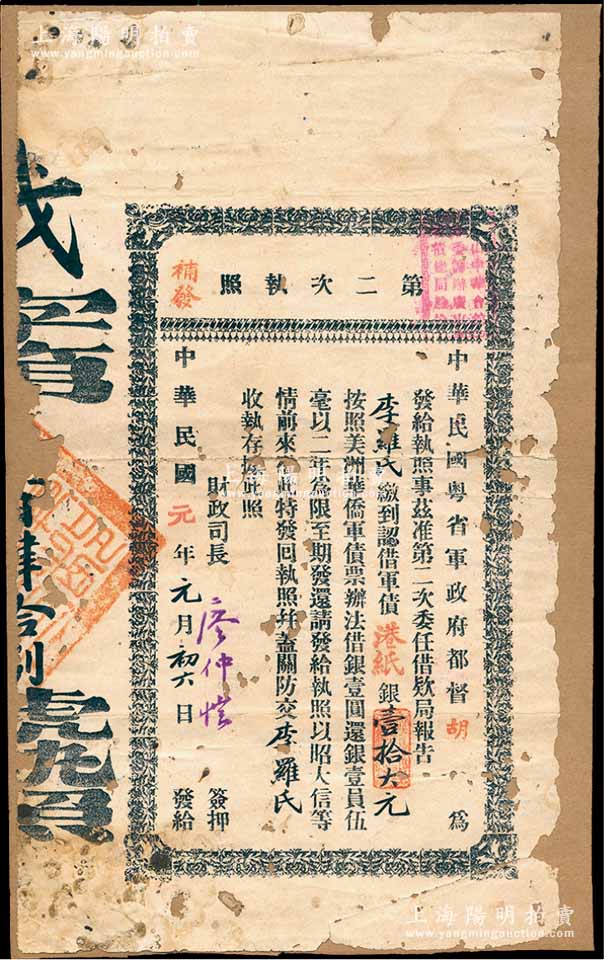 上海陽明拍賣
www.yangmingauction.com
第二次執照
補發
中華民國粵省軍政府都督胡 為
發給執照事茲准第二次委任借欵局報告
李羅氏繳到認借軍債港紙銀壹拾大元
按照美洲華僑軍債票辦法借銀壹圓還銀壹員伍
毫以二年為限至期發還請發給執照以昭大信等
情前來 此特發回執照幷蓋關防交李羅氏
收執存 照
財政司長廖仲愷 簽押
中華民國元年元月初六日 發給
肆拾捌
上海陽明拍賣
www.yangmingauction.com
上海陽明拍賣
www.yangmingauction.com